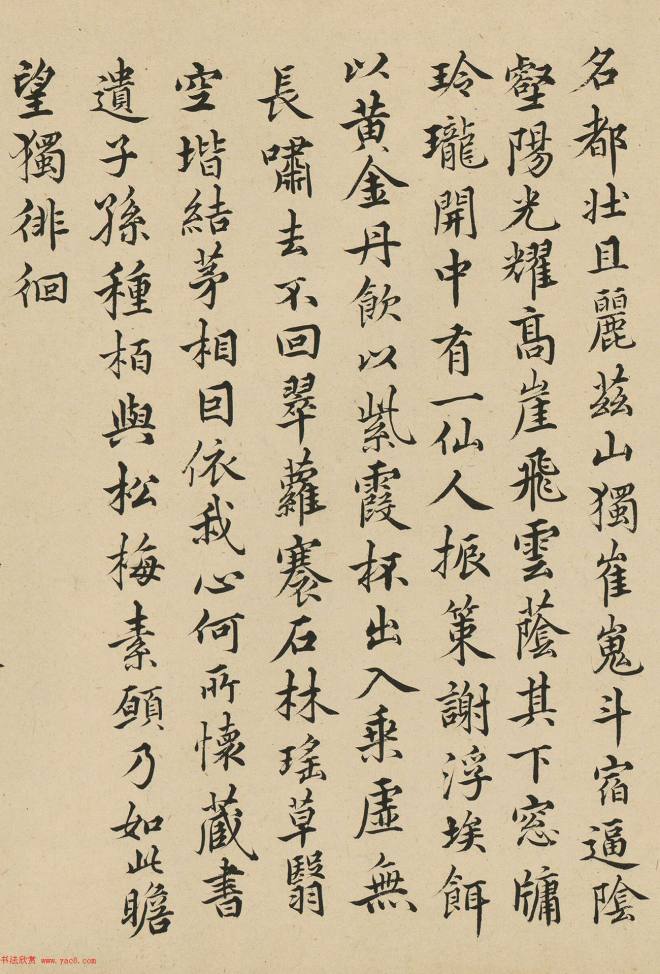 名都壯且麗茲山獨崔嵬斗宿逼陰
壑陽光耀高崖飛雲蔭其下窓牖
玲瓏開中有一仙人振策謝浮埃餌
以黃金丹飲以紫霞杯出入乘虛無
長嘯去不回翠蘿褰石林瑤草翳
空堦結茅相因依我心何所懷藏書
遺子孫種栢與松梅素願乃如此瞻
望獨徘徊
书法欣赏 www.yac8.com